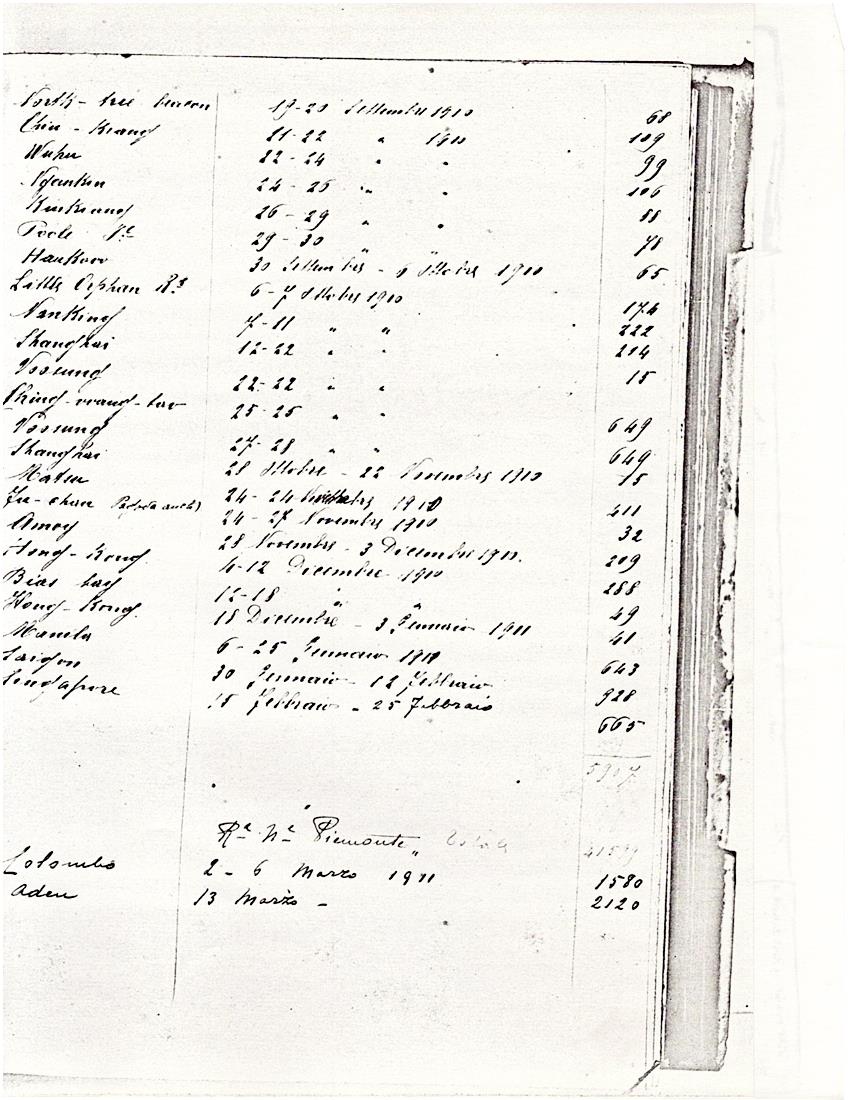 North-tree beacon 19-20 Settembre 1910 68
Chin-Kiang 21-22 " 1910 109
Wuhu 22-24 " " 99
Ngankin 24-25 " " 106
Kiukiang 26-29 " " 58
Poole Pt 29-30 " " 78
Hankow 30 Settembre - 6 Ottobre 1910 65
Little Orphan Rs 6-7 Ottobre 1910 174
Nanking 7-11 " " 222
Shanghai 12-22 " " 214
Vossung 22-22 " " 15
Ching-wang-tao 25-25 " " 649
Vossung 27-28 " " 649
Shanghai 28 Ottobre - 22 Novembre 1910 15
Matsu 24-24 1910 411
Fu-chau Pagoda anch) 24-27 Novembre 1910 32
Amoy 28 Novembre - 3 Dicembre 1910. 209
Hong-Kong. 4-12 Dicembre 1910 288
Bias bay 12-18 " " 49
Hong-Kong. 18 Dicembre - 3 Gennaio 1911 41
Manila 6-25 Gennaio 1911 643
Saigon 30 Gennaio - 12 Febbraio 928
Singapore 15 Febbraio - 25 Febbraio 665
5907
Ra Ne Piemonte"
Colombo 2-6 Marzo 1911 1580
Aden 13 Marzo - 2120